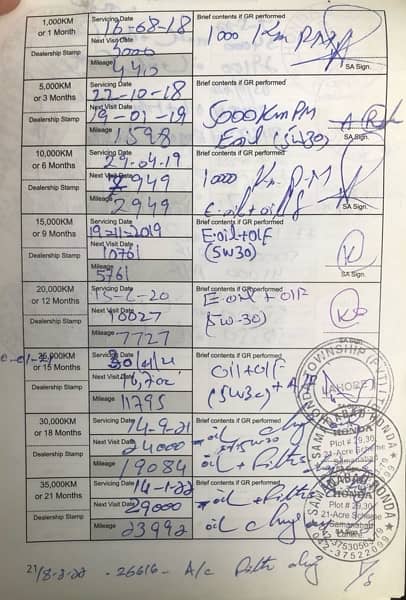 1,000KM
or 1 Month
Servicing Date
16-08-18
Brief contents if GR performed
1000 Km PM
Next Visit Date
Dealership Stamp
Mileage
440
SA Sign.
5,000KM
or 3 Months
Servicing Date
22-10-18
Brief contents if GR performed
5000Km PM
Next Visit Date
19-01-19
E.oil (5W30)
Dealership Stamp
Mileage
1598
SA Sign.
10,000KM
or 6 Months
Servicing Date
29-04-19
Brief contents if GR performed
Next Visit Date
7949
Dealership Stamp
Mileage
2949
SA Sign.
15,000KM
or 9 Months
Servicing Date
Brief contents if GR performed
E.oil+O/F
(5W30)
Next Visit Date
10761
Dealership Stamp
Mileage
5761
SA Sign.
20,000KM
or 12 Months
Servicing Date
Brief contents if GR performed
E.oil + O/F
(5W-30)
Next Visit Date
10027
Dealership Stamp
Mileage
7727
25,000KM
or 15 Months
Servicing Date
Brief contents if GR performed
Oil+O/F
(5W30) + A/F
Next Visit Date
16,702
Dealership Stamp
Mileage
11795
LAHORE
30,000KM
or 18 Months
Servicing Date
14-9-21
Brief contents if GR performed
Next Visit Date
24000
5W30
oil + Filters
Dealership Stamp
Mileage
19084
SAMANABAD HONDA
Plot # 29,30
21-Acre Scheme
Samanabad
35,000KM
or 21 Months
Servicing Date
14-1-22
Brief contents if GR performed
oil + Filters
Next Visit Date
29000
Dealership Stamp
Mileage
23992
SAMANABAD HONDA
Plot # 29,30
21-Acre Scheme
Samanabad
042-37530569
042-37522099
21
/8-3-22 - 26616 - A/c